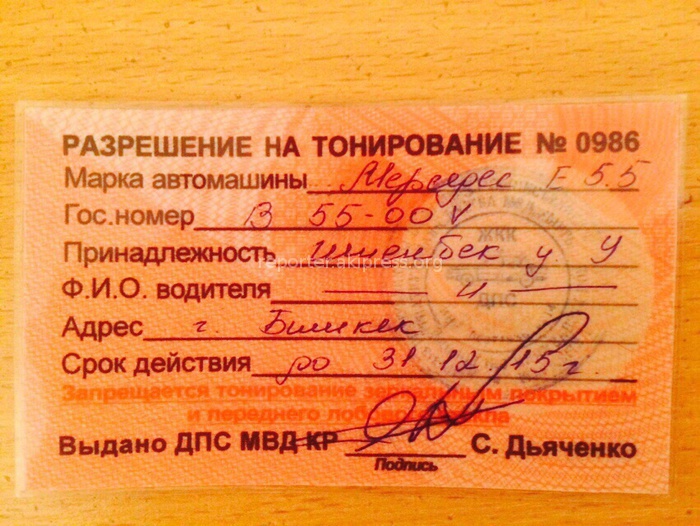 РАЗРЕШЕНИЕ НА ТОНИРОВАНИЕ № 0986
Марка автомашины Мерседес Е 5.5
Гос.номер В 55-00 V
Принадлежность у У
reporter.akipress.org
Ф.И.О. водителя — и —
Адрес г. Бишкек
Срок действия до 31.12.15 г.
Запрещается тонирование зеркальным покрытием
и переднего лобового стекла
Выдано ДПС МВД КР С. Дьяченко
Подпись
ЖКК
ДПС